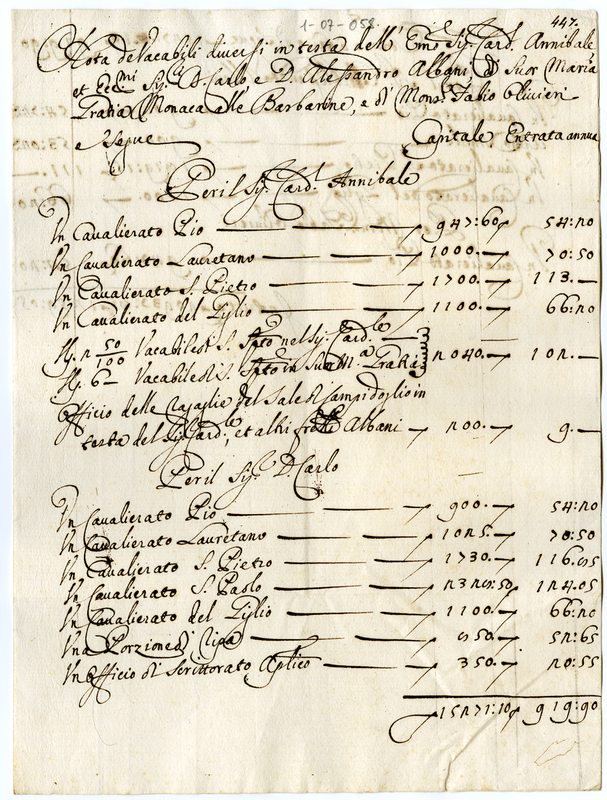 1-07-058.
447.
Nota de Vacabili diversi in testa dell' Emo Sig. Card. Annibale
et Eccmi Sig. D. Carlo e D. Alessandro Albani, di Suor Maria
Gratia Monaca alle Barbarine, e di Mons. Fabio Olivieri
e segue
Capitale Entrata annua
Per il Sig. Card. Annibale
Un Cavalierato Pio — 947:60 54:20
Un Cavalierato Lauretano — 1000. 70:50
Un Cavalierato S. Pietro — 1700. 113. —
Un Cavalierato del Giglio — 1100. 66:20
50/100 Vacabile di S. Spto nel Sig. Card.le
6— Vacabile di S. Spto in Suor M.a Gratia 2040. 102. —
Officio delle Ripaglie del Sale di Campidoglio in
testa del Sig. Card.le, et altri frelli Albani — 200. 9. —
Per il Sig. D. Carlo
Un Cavalierato Pio — 900. 54:20
Un Cavalierato Lauretano — 1025. 70:50
Un Cavalierato S. Pietro — 1730. 116.85
Un Cavalierato S. Paolo — 2328:50 124.05
Un Cavalierato del Giglio — 1100. 66:20
Una Porzione di Ripa — 850. 52:65
Un Officio di Scrittorato Aplico — 350. 20:55
15271:10 919:90